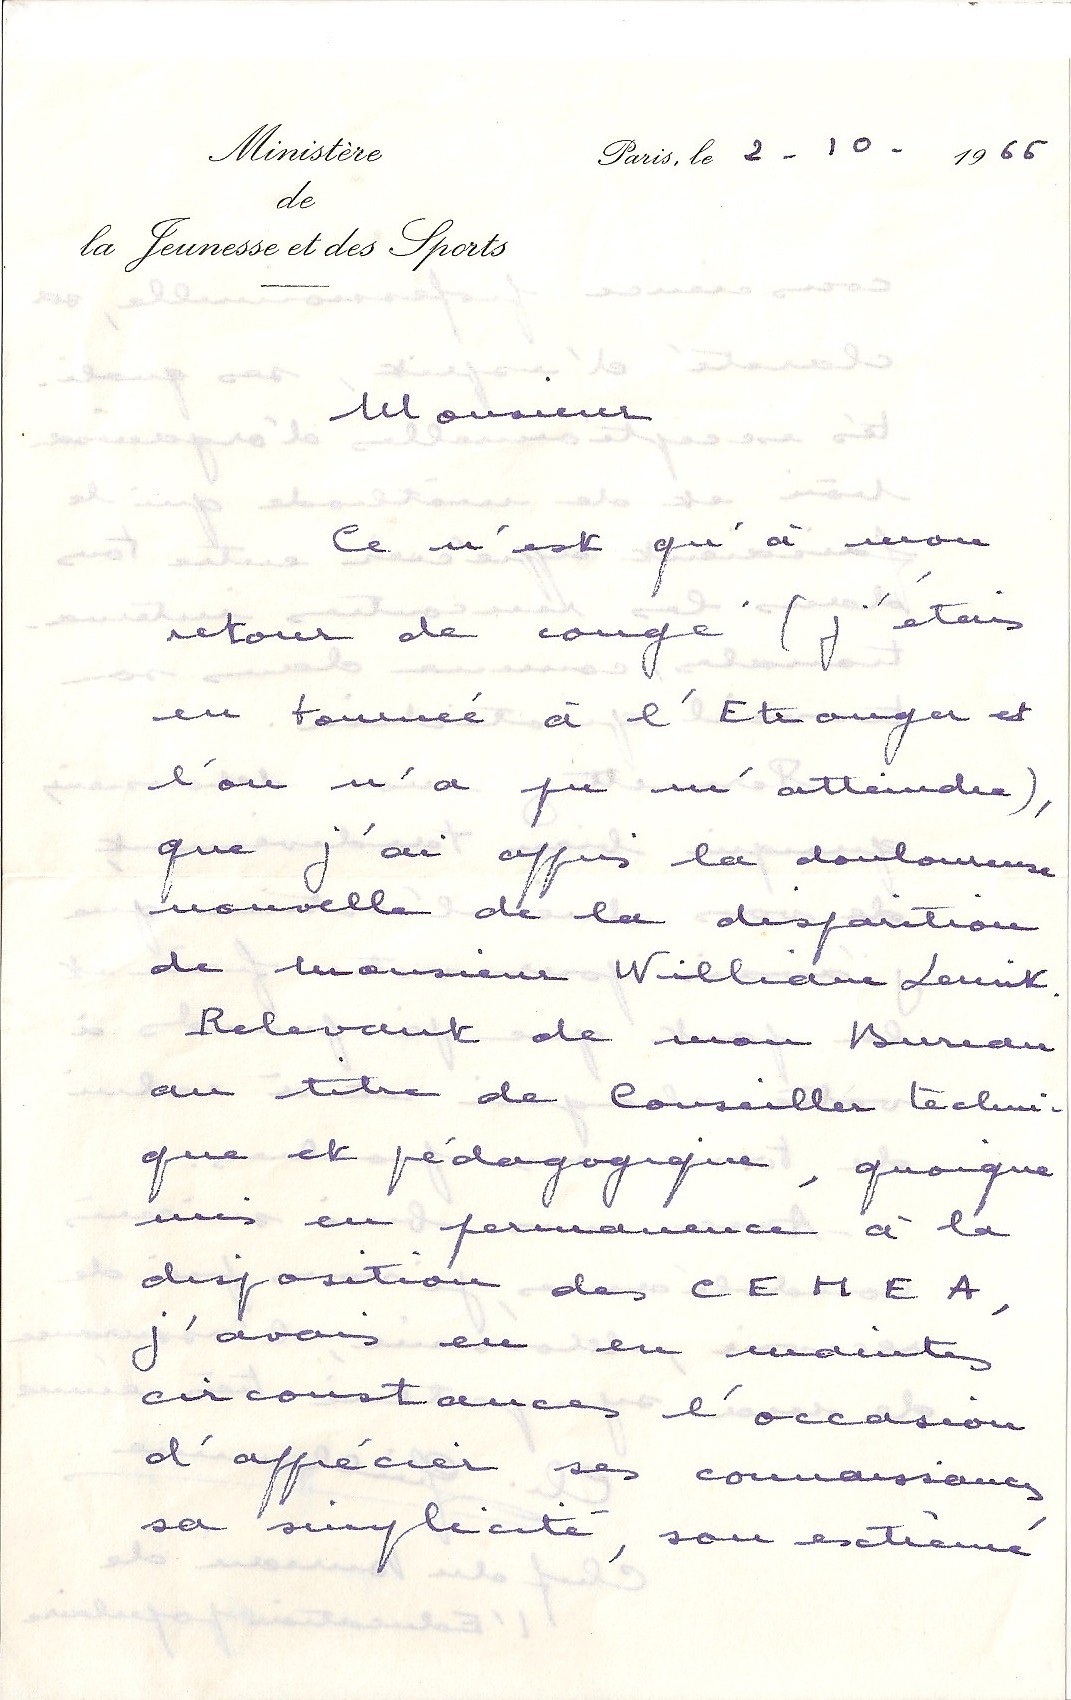 Ministère
de
la Jeunesse et des Sports
Paris, le 2 - 10 - 1966
Monsieur
Ce n'est qu'à mon
retour de congé (j'étais
en tournée à l'Etranger et
l'on n'a pu m'atteindre),
que j'ai appris la douloureuse
nouvelle de la disparition
de monsieur William Lemit.
Relevant de mon Bureau
au titre de Conseiller techni-
que et pédagogique, quoique
mis en permanence à la
disposition des C E M E A,
j'avais eu en maintes
circonstances l'occasion
d'apprécier ses connaissances
sa simplicité, son extrême